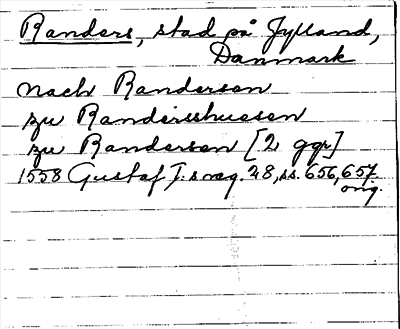 Randers, stad på Jylland,
Danmark
nach Randersen
zu Randershussen
zu Randersen [2 ggr]
1558 Gustaf I:s reg. 28, ss. 656, 657
orig.